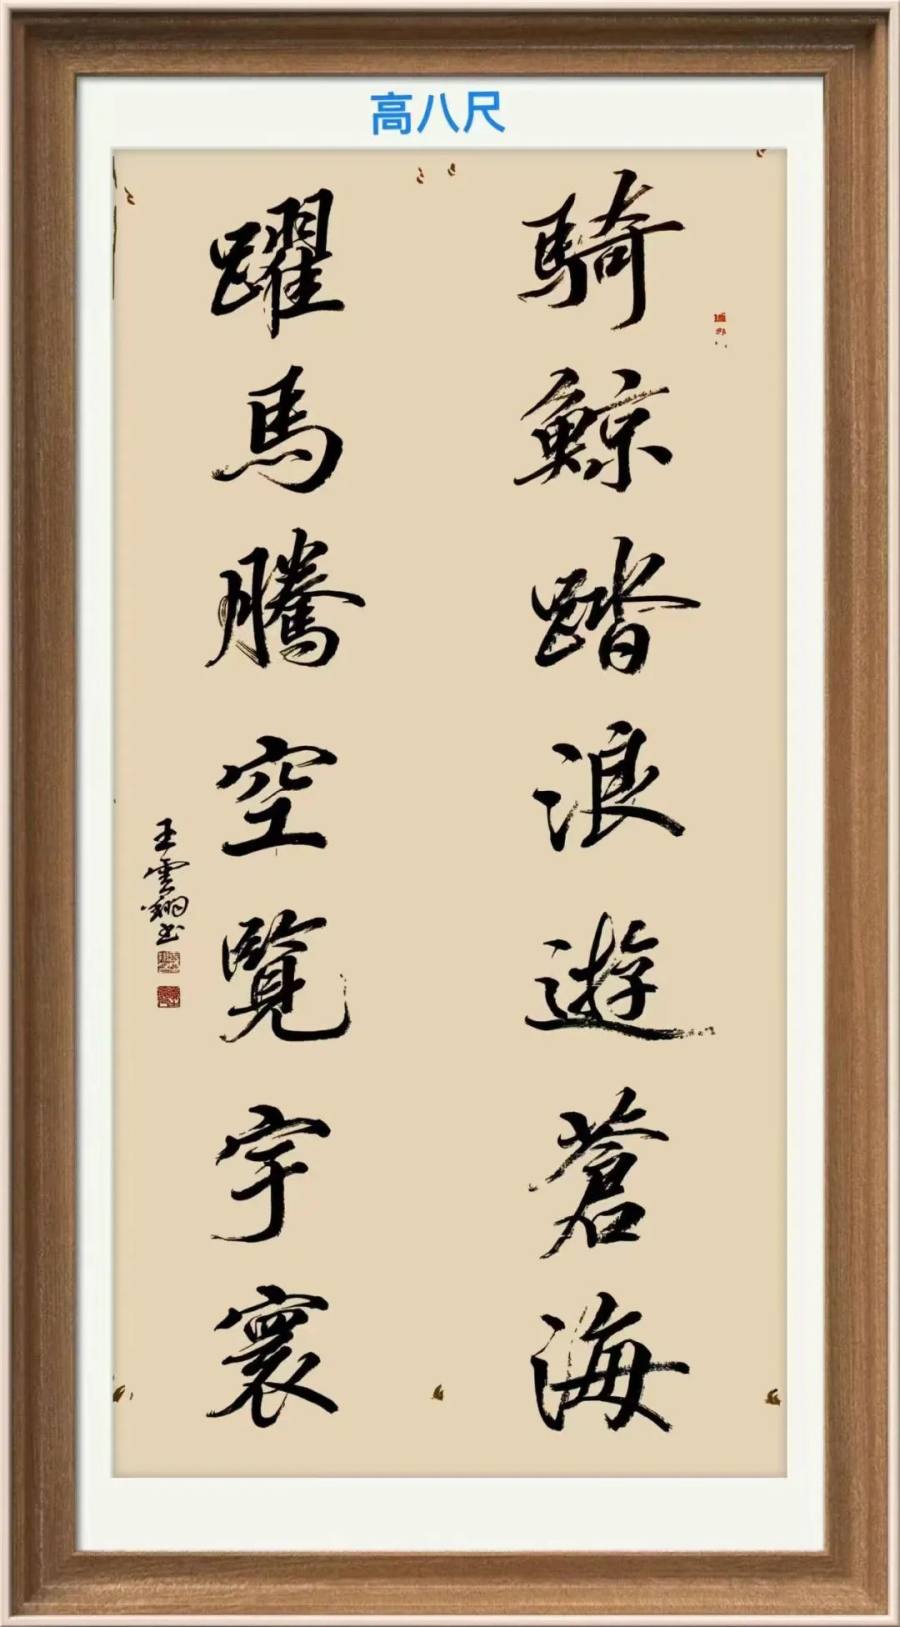 高八尺
騎鯨踏浪遊蒼海
躍馬騰空覽宇寰
王雲翔书